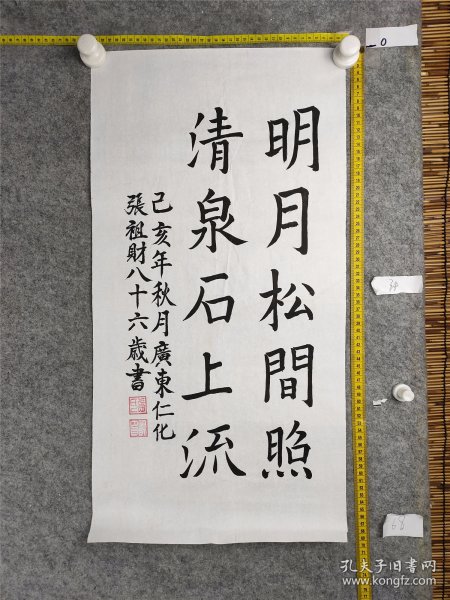 明月松間照
清泉石上流
己亥年秋月廣東仁化
張祖財八十六歲書
0
34
68
孔夫子旧书网
www.kongfz.com